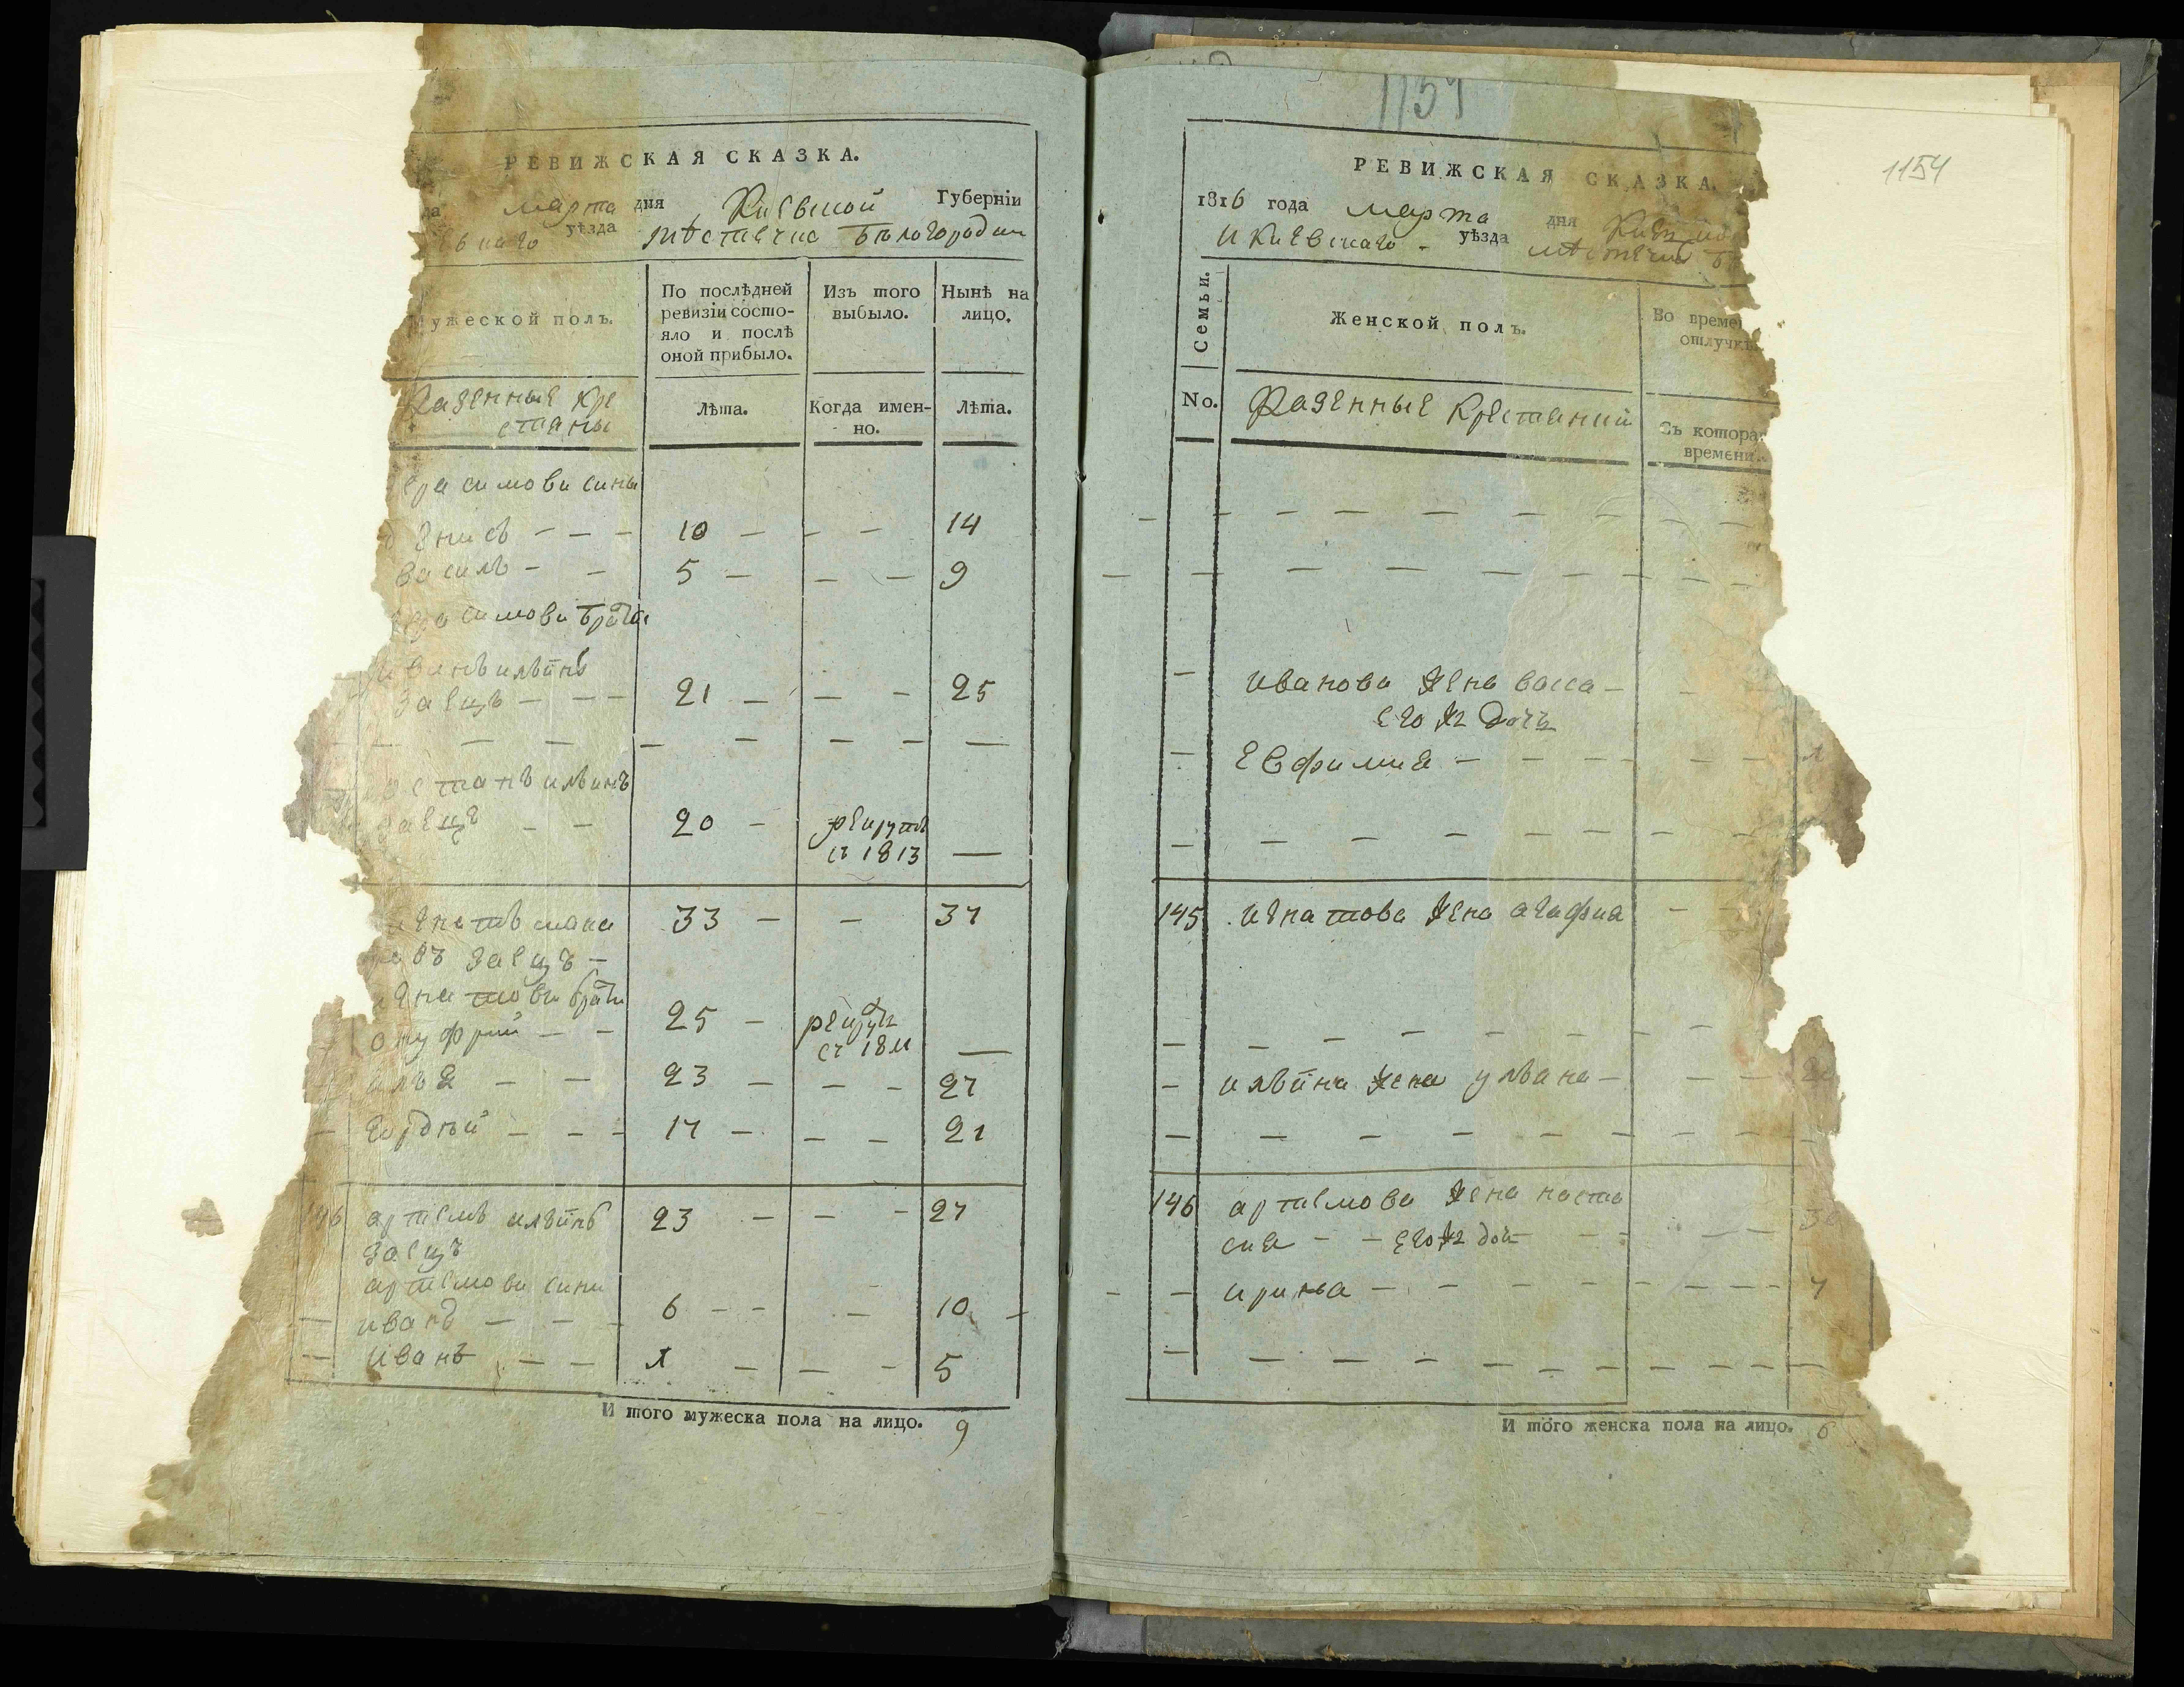 РЕВИЖСКАЯ СКАЗКА.
да марта дня Киевской Губерніи
уѣзда мѣстечка Бѣлогородки
ужеской полъ.
По послѣдней
ревизіи состо-
яло и послѣ
оной прибыло.
Изъ того
выбыло.
Нынѣ на
лицо.
Казенные кре
стяны
Лѣта.
Когда имен-
но.
Лѣта.
расимови сины
денисъ - - - 10 - - - 14
василь - - 5 - - - 9
расимови брати
иванъ илѣинъ
Заецъ - - - 21 - - - 25
- - - - - - - -
станъ илѣинъ
заецъ - - 20 - рекрутъ
съ 1813 -
игнатъ мака 33 - - 37
ровъ Заецъ -
игнатови брати
онуфрий - - 25 - рекрут
съ 1811 -
илья - - 23 - - - 27
гордѣй - - - 17 - - - 21
146 артемъ илѣинъ 23 - - - 27
заецъ
артемови сини
иванъ - - - 6 - - - 10 -
иванъ - - - - - 5
И того мужеска пола на лицо. 9
1154
1154
РЕВИЖСКАЯ СКАЗКА.
1816 года марта дня
и Киевскаго - уѣзда мѣстечка
Семьи.
Женской полъ.
Во време
отлучкѣ
No.
Казенные Крестянки
Съ котора
времени.
- - - - - - - - - -
- - - - - - - - - -
- иванова жена васса -
его же дочь
- Евфимия - - - - - -
- - - - - - - - -
145 игнатова жена агафия - -
- - - - - - - - -
- илѣина жена уляна - - -
- - - - - - - - - -
146 артемова жена наста
сия - - его же доч - - - -
- - ирина - - - - - - - - 7
- - - - - - - - - -
И того женска пола на лицо. 6